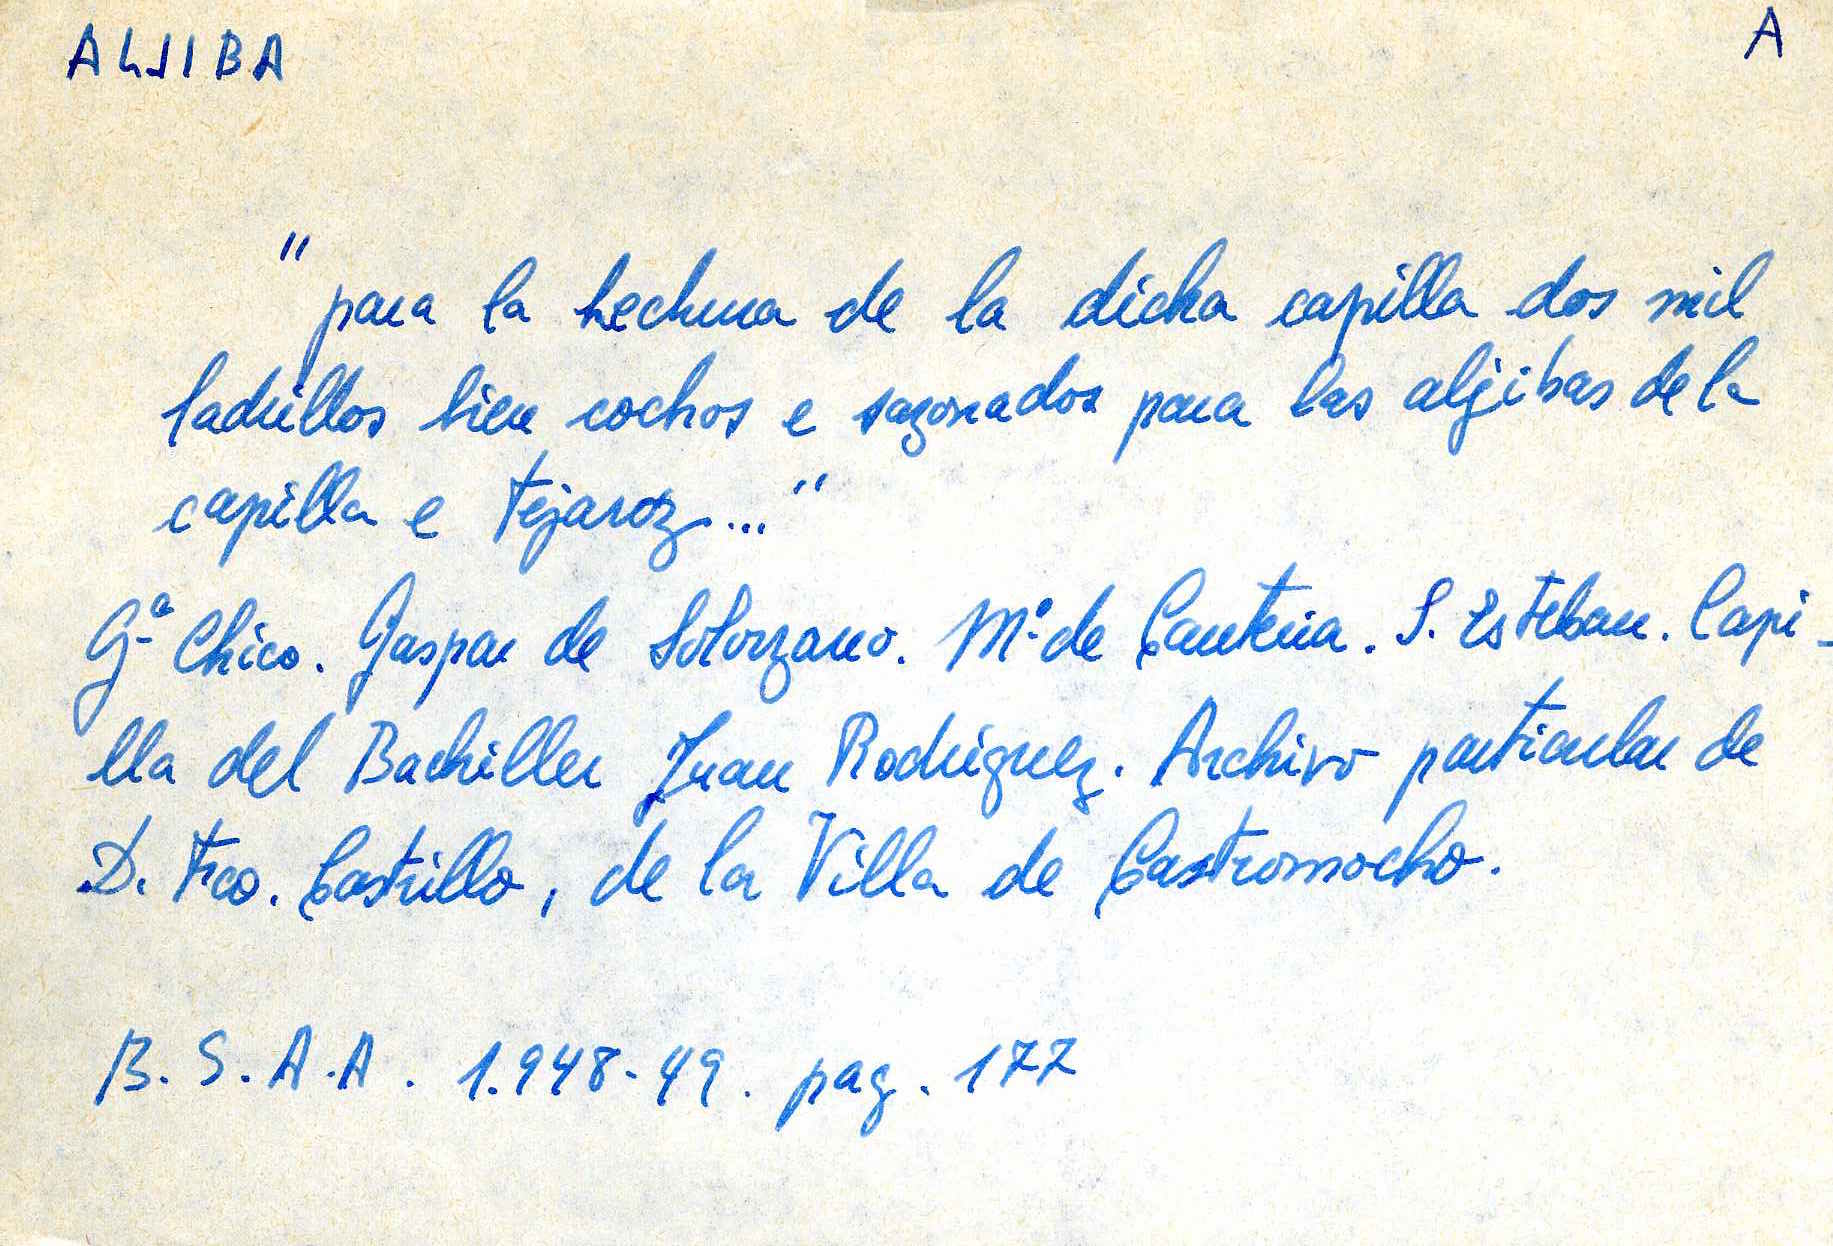 ALJIBA A
"para la hechura de la dicha capilla dos mil
ladrillos bien cochos e sazonados para las aljibas de la
capilla e tejaroz..."
Gª Chico. Gaspar de Solorzano. Mº de Cantería. S. Esteban. Capi-
lla del Bachiller Juan Rodriguez. Archivo particular de
D. Fco. Castrillo, de la Villa de Castromocho.
B. S. A. A. 1.948-49. pag. 177